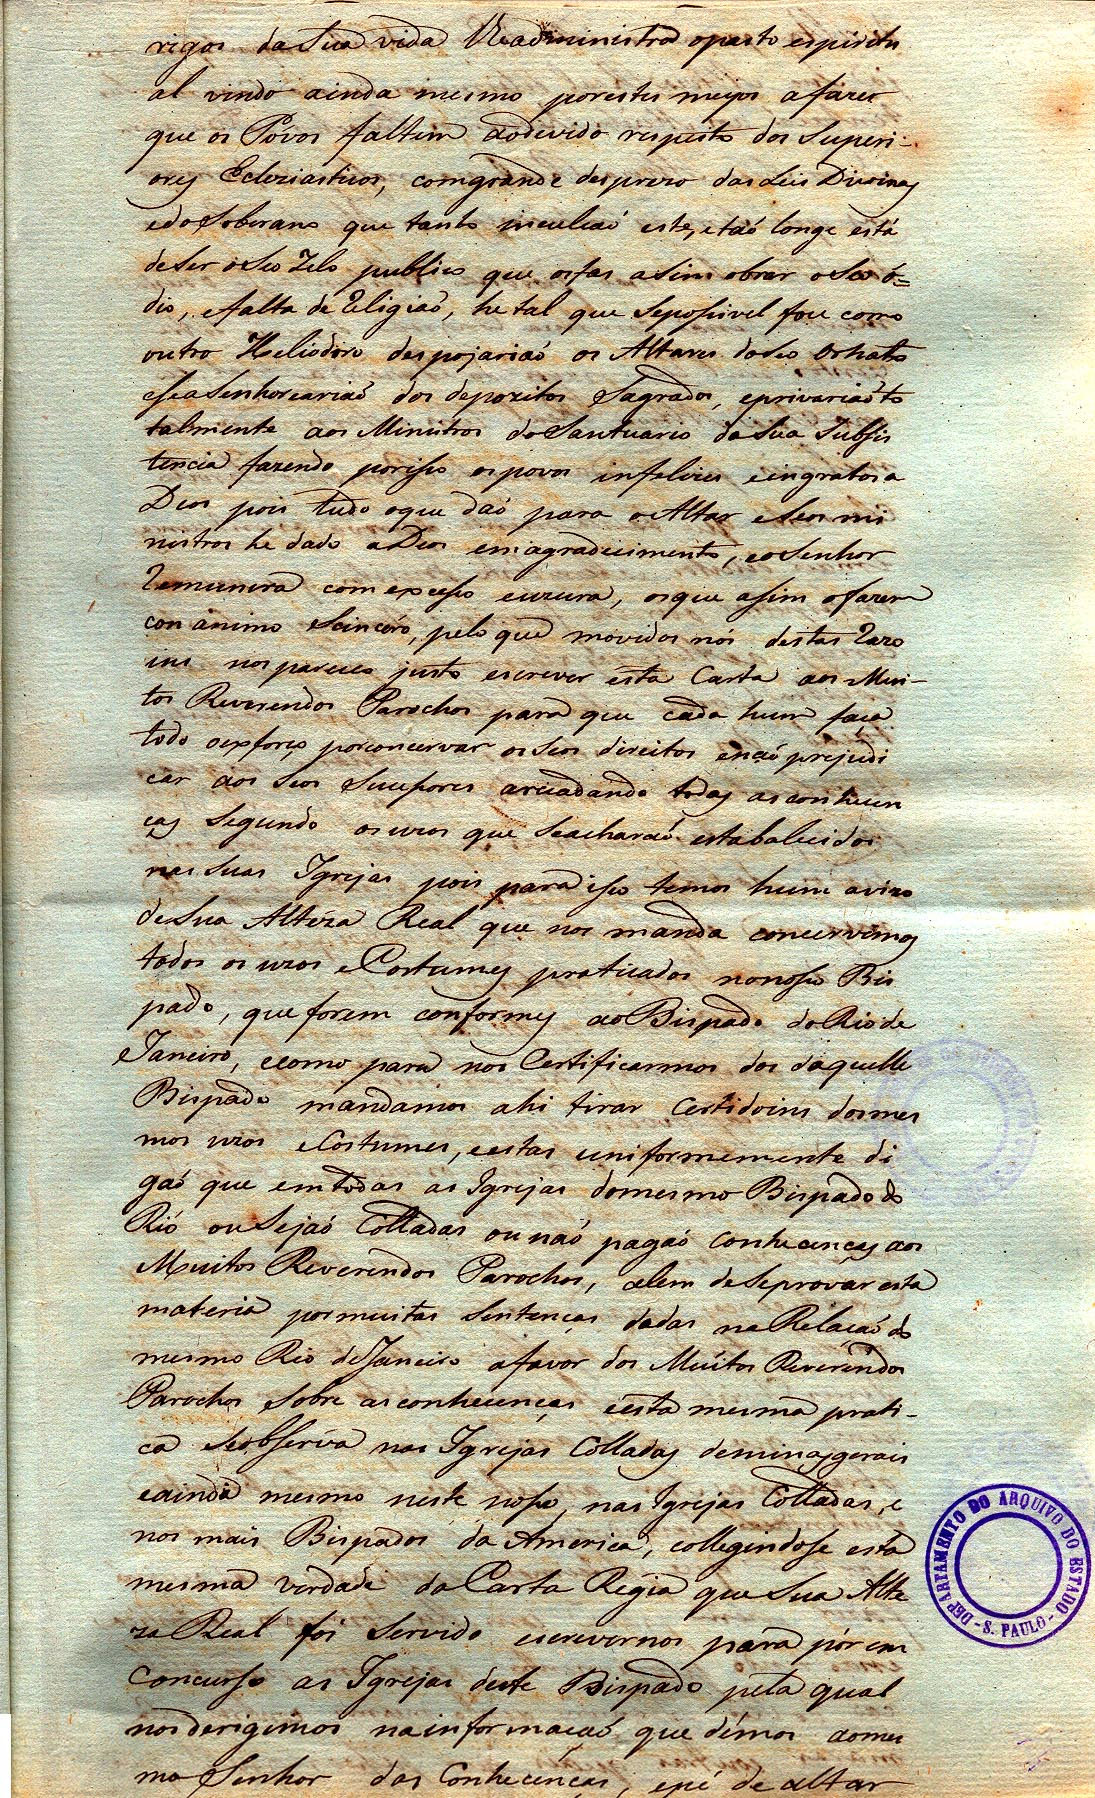 rigos da Sua vida lhe administrão opasto espiritu
al vindo ainda mesmo porestes meyos afazer
que os Povos faltem aodevido respeito dos Superi-
ores Ecleziasticos, comgrande desprezo das Leis Divinas
edo Soberano que tanto inculcaó este, etaó longe está
deser oseo Zelo publico que osfas asim obrar oseo ó=
dio, efalta de Religiaó, he tal que Sepossivel fou como
outro Heliodoro despojariaó os Altares doseo Ornato
eseasenhoreariaó dos depozitos Sagrados, eprivariaó to
talmente aos Ministros do Santuario da Sua Subsis
tencia fazendo porisso os povos infelices eingratos a
Deos pois tudo oque daó para o Altar eSeos mi
nistros he dado a Deos emagradecimento, eo Senhor
Remunera com excesso euzura, osque asim ofazem
con animo Scincéro, pelo que movidos nós destas Razo
ins nos pareceo justo escrever esta Carta aos Mui-
tos Reverendos Parochos para que cada hum faça
todo oexforço porconcervar os Seos direitos enaó prejudi
car aos Seos Sucessores arecadando todas as conhecen
ças Segundo os uzos que Seacharaó estabalecidos
nas Suas Igrejas pois para isso temos hum avizo
de Sua Alteza Real que nos manda concervemos
todos os uzos eCostumes praticados nonosso Bis
pado, que forem conformes ao Bispado do Rio de
Janeiro, ecomo para nos Certificarmos dos daquelle
Bispado mandamos ahi tirar Certidoins dosmes
mos uzos eCostumes, eestas uniformemente di
gaó que emtodas as Igrejas domesmo Bispado do
Rió ou Sejaó Colladas ou náó pagaó conhecenças aos
Muitos Reverendos Parochos, alem deSeprovar esta
materia pormuitas Sentenças dadas na Relaçaó do
mesmo Rio de Janeiro afavor dos Muitos Reverendos
Parochos Sobre as conhecenças eesta mesma prati-
ca Seobserva nas Igrejas Colladas deminasgerais
eainda mesmo neste nosso, nas Igrejas Colladas, e
nos mais Bispados da America, collegindose esta
mesma verdade da Carta Regia que Sua Alte
za Real foi Servido escrevernos pára pór em
Concurso as Igrejas deste Bispado pela qual
nos derigimos na informaçaó que démos aomes
mo Senhor das Conhecenças, epé de altar
DEPARTAMENTO DO ARQUIVO DO ESTADO
- S. PAULO -